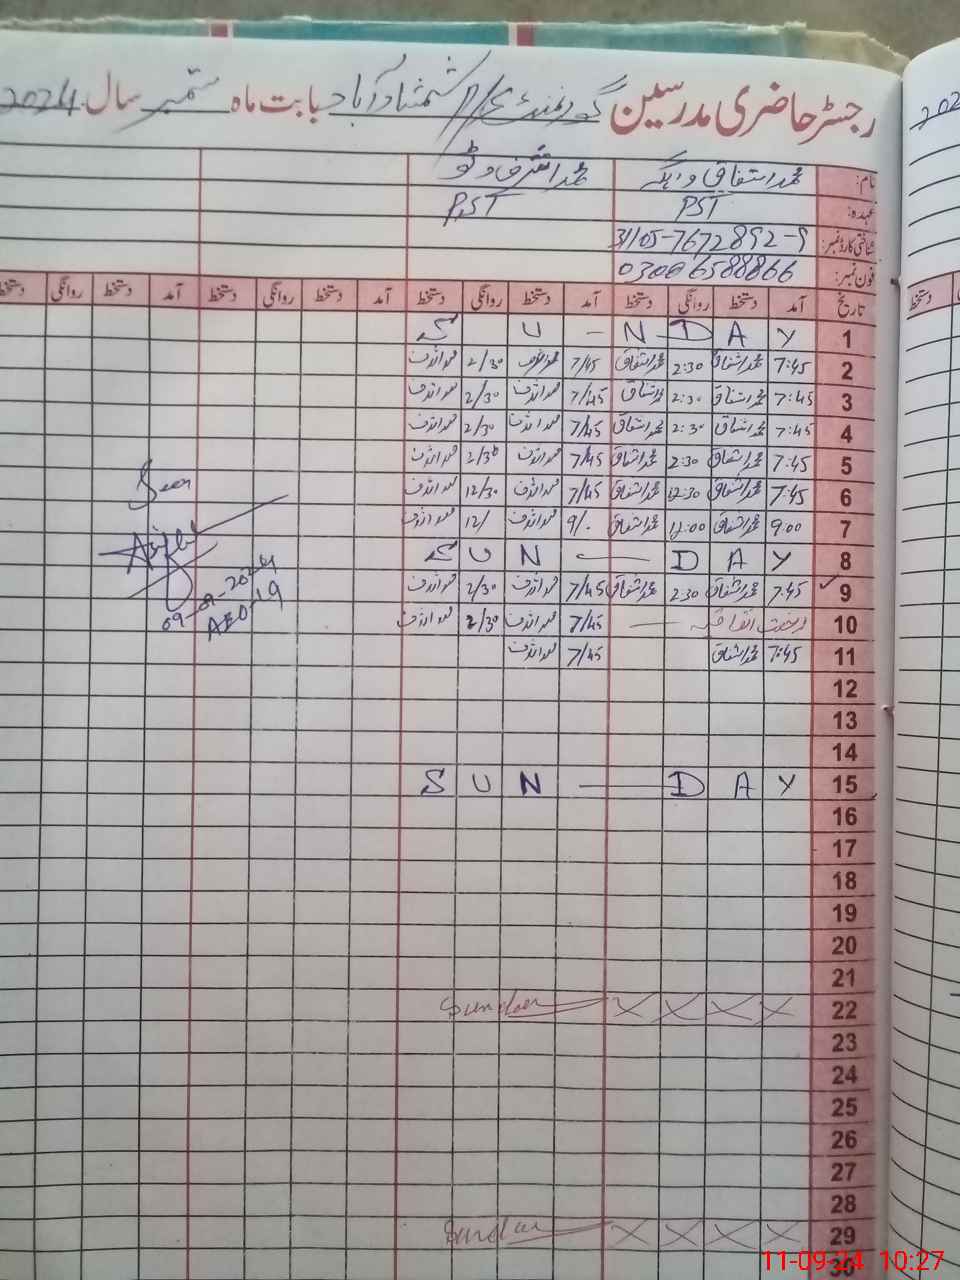 رجسٹر حاضری مدرسین گورنمنٹ P/S شمشاد آباد بابت ماہ ستمبر سال 2024
نام: محمد اشفاق واہگہ محمد اشرف وٹو
عہدہ: PST PST
شناختی کارڈ نمبر: 31105-7672892-9
فون نمبر: 03006588866
تاریخ آمد دستخط روانگی دستخط آمد دستخط روانگی دستخط آمد دستخط روانگی دستخط آمد دستخط روانگی دستخط
1 S U - N D A Y
2 7:45 محمد اشفاق 2:30 محمد اشفاق 7/45 محمد اشرف 2/30 محمد اشرف
3 7:45 محمد اشفاق 2:30 محمد اشفاق 7/45 محمد اشرف 2/30 محمد اشرف
4 7:45 محمد اشفاق 2:30 محمد اشفاق 7/45 محمد اشرف 2/30 محمد اشرف
5 7:45 محمد اشفاق 2:30 محمد اشفاق 7/45 محمد اشرف 2/30 محمد اشرف
6 7:45 محمد اشفاق 12:30 محمد اشفاق 7/45 محمد اشرف 12/30 محمد اشرف
7 9:00 محمد اشفاق 12:00 محمد اشفاق 9/. محمد اشرف 12/ محمد اشرف
8 S U N - D A Y
9 7:45 محمد اشفاق 2:30 محمد اشفاق 7/45 محمد اشرف 2/30 محمد اشرف
10 رخصت اتفاقیہ 7/45 محمد اشرف 2/30 محمد اشرف
11 7:45 محمد اشفاق 7/45 محمد اشرف
Seen
09-09-2024
AEO-19
12
13
14
15 S U N - D A Y
16
17
18
19
20
21
22 X X X X
23
24
25
26
27
28
29 X X X X
30
202
دستخط
11-09-24 10:27